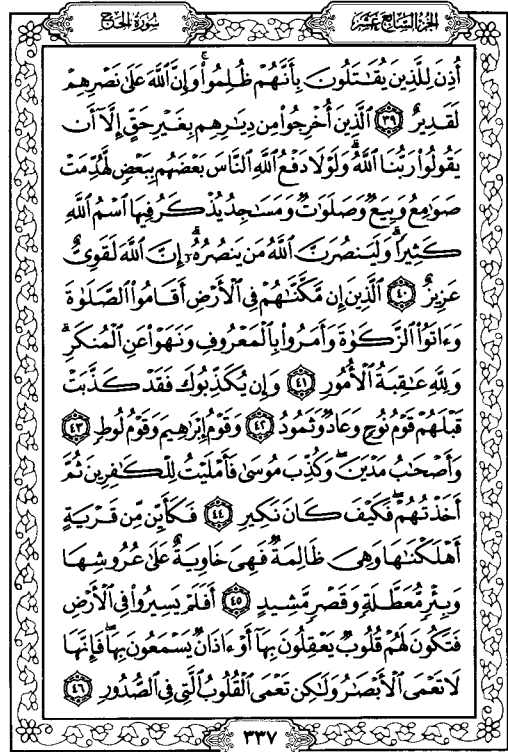 سُورَةُ الحَجِّ
الجُزءُ السَّابِعَ عَشَرَ
أُذِنَ لِلَّذِينَ يُقَٰتَلُونَ بِأَنَّهُمْ ظُلِمُوا۟ ۚ وَإِنَّ ٱللَّهَ عَلَىٰ نَصْرِهِمْ
لَقَدِيرٌ ٣٩ ٱلَّذِينَ أُخْرِجُوا۟ مِن دِيَٰرِهِم بِغَيْرِ حَقٍّ إِلَّآ أَن
يَقُولُوا۟ رَبُّنَا ٱللَّهُ ۗ وَلَوْلَا دَفْعُ ٱللَّهِ ٱلنَّاسَ بَعْضَهُم بِبَعْضٍ لَّهُدِّمَتْ
صَوَٰمِعُ وَبِيَعٌ وَصَلَوَٰتٌ وَمَسَٰجِدُ يُذْكَرُ فِيهَا ٱسْمُ ٱللَّهِ
كَثِيرًا ۗ وَلَيَنصُرَنَّ ٱللَّهُ مَن يَنصُرُهُۥٓ ۗ إِنَّ ٱللَّهَ لَقَوِىٌّ
عَزِيزٌ ٤٠ ٱلَّذِينَ إِن مَّكَّنَّٰهُمْ فِى ٱلْأَرْضِ أَقَامُوا۟ ٱلصَّلَوٰةَ
وَءَاتَوُا۟ ٱلزَّكَوٰةَ وَأَمَرُوا۟ بِٱلْمَعْرُوفِ وَنَهَوْا۟ عَنِ ٱلْمُنكَرِ ۗ
وَلِلَّهِ عَٰقِبَةُ ٱلْأُمُورِ ٤١ وَإِن يُكَذِّبُوكَ فَقَدْ كَذَّبَتْ
قَبْلَهُمْ قَوْمُ نُوحٍ وَعَادٌ وَثَمُودُ ٤٢ وَقَوْمُ إِبْرَٰهِيمَ وَقَوْمُ لُوطٍ ٤٣
وَأَصْحَٰبُ مَدْيَنَ ۖ وَكُذِّبَ مُوسَىٰ فَأَمْلَيْتُ لِلْكَٰفِرِينَ ثُمَّ
أَخَذْتُهُمْ ۖ فَكَيْفَ كَانَ نَكِيرِ ٤٤ فَكَأَيِّن مِّن قَرْيَةٍ
أَهْلَكْنَٰهَا وَهِىَ ظَالِمَةٌ فَهِىَ خَاوِيَةٌ عَلَىٰ عُرُوشِهَا
وَبِئْرٍ مُّعَطَّلَةٍ وَقَصْرٍ مَّشِيدٍ ٤٥ أَفَلَمْ يَسِيرُوا۟ فِى ٱلْأَرْضِ
فَتَكُونَ لَهُمْ قُلُوبٌ يَعْقِلُونَ بِهَآ أَوْ ءَاذَانٌ يَسْمَعُونَ بِهَا ۖ فَإِنَّهَا
لَا تَعْمَى ٱلْأَبْصَٰرُ وَلَٰكِن تَعْمَى ٱلْقُلُوبُ ٱلَّتِى فِى ٱلصُّدُورِ ٤٦
٣٣٧